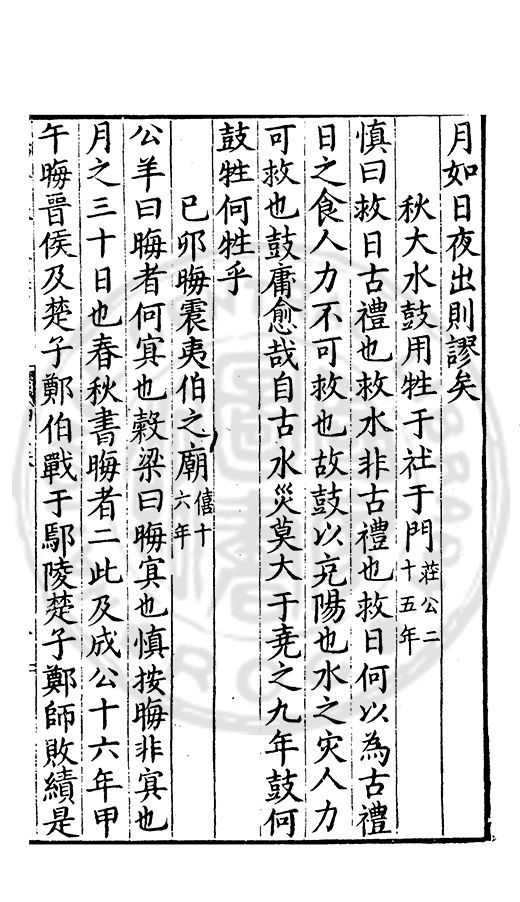 月如日夜出則謬矣
秋大水鼓用牲于社于門莊公二十五年
慎曰救日古禮也救水非古禮也救日何以為古禮
日之食人力不可救也故鼓以充陽也水之灾人力
可救也鼓庸愈哉自古水災莫大于堯之九年鼓何
鼓牲何牲乎
己卯晦震夷伯之廟僖十六年
公羊曰晦者何㝠也穀梁曰晦㝠也慎按晦非㝠也
月之三十日也春秋書晦者二此及成公十六年甲
午晦晉侯及楚子鄭伯戰于鄢陵楚子鄭師敗績是